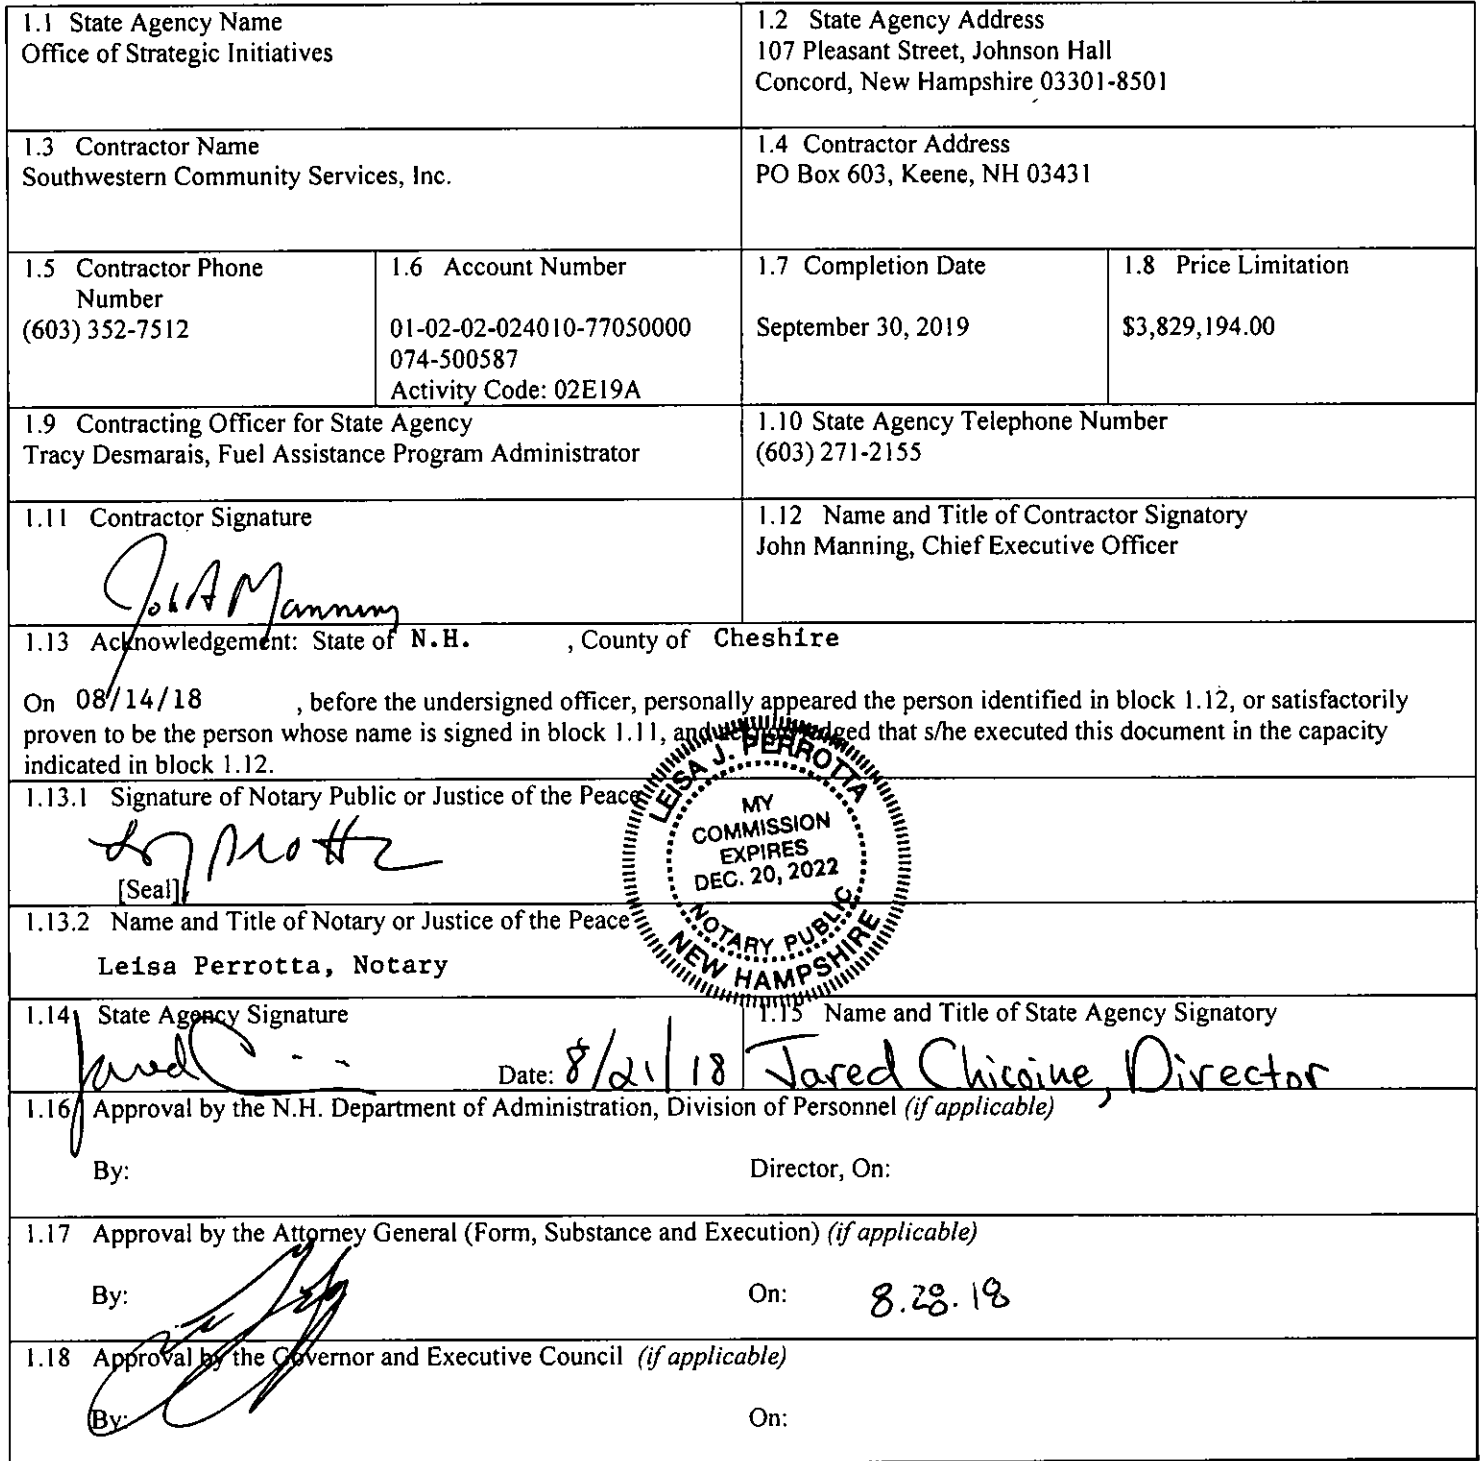 1.1 State Agency Name
Office of Strategic Initiatives
1.2 State Agency Address
107 Pleasant Street, Johnson Hall
Concord, New Hampshire 03301-8501
1.3 Contractor Name
Southwestern Community Services, Inc.
1.4 Contractor Address
PO Box 603, Keene, NH 03431
1.5 Contractor Phone
Number
(603) 352-7512
1.6 Account Number
01-02-02-024010-77050000
074-500587
Activity Code: 02E19A
1.7 Completion Date
September 30, 2019
1.8 Price Limitation
$3,829,194.00
1.9 Contracting Officer for State Agency
Tracy Desmarais, Fuel Assistance Program Administrator
1.10 State Agency Telephone Number
(603) 271-2155
1.11 Contractor Signature
John A Manning
1.12 Name and Title of Contractor Signatory
John Manning, Chief Executive Officer
1.13 Acknowledgement: State of N.H. , County of Cheshire
On 08/14/18 , before the undersigned officer, personally appeared the person identified in block 1.12, or satisfactorily
proven to be the person whose name is signed in block 1.11, and acknowledged that s/he executed this document in the capacity
indicated in block 1.12.
1.13.1 Signature of Notary Public or Justice of the Peace
[Seal]
LEISA J. PERROTTA
MY
COMMISSION
EXPIRES
DEC. 20, 2022
NOTARY PUBLIC
NEW HAMPSHIRE
1.13.2 Name and Title of Notary or Justice of the Peace
Leisa Perrotta, Notary
1.14 State Agency Signature
Jared C
Date: 8/21/18
1.15 Name and Title of State Agency Signatory
Jared Chicoine, Director
1.16 Approval by the N.H. Department of Administration, Division of Personnel (if applicable)
By:
Director, On:
1.17 Approval by the Attorney General (Form, Substance and Execution) (if applicable)
By:
On: 8.28.18
1.18 Approval by the Governor and Executive Council (if applicable)
By:
On: